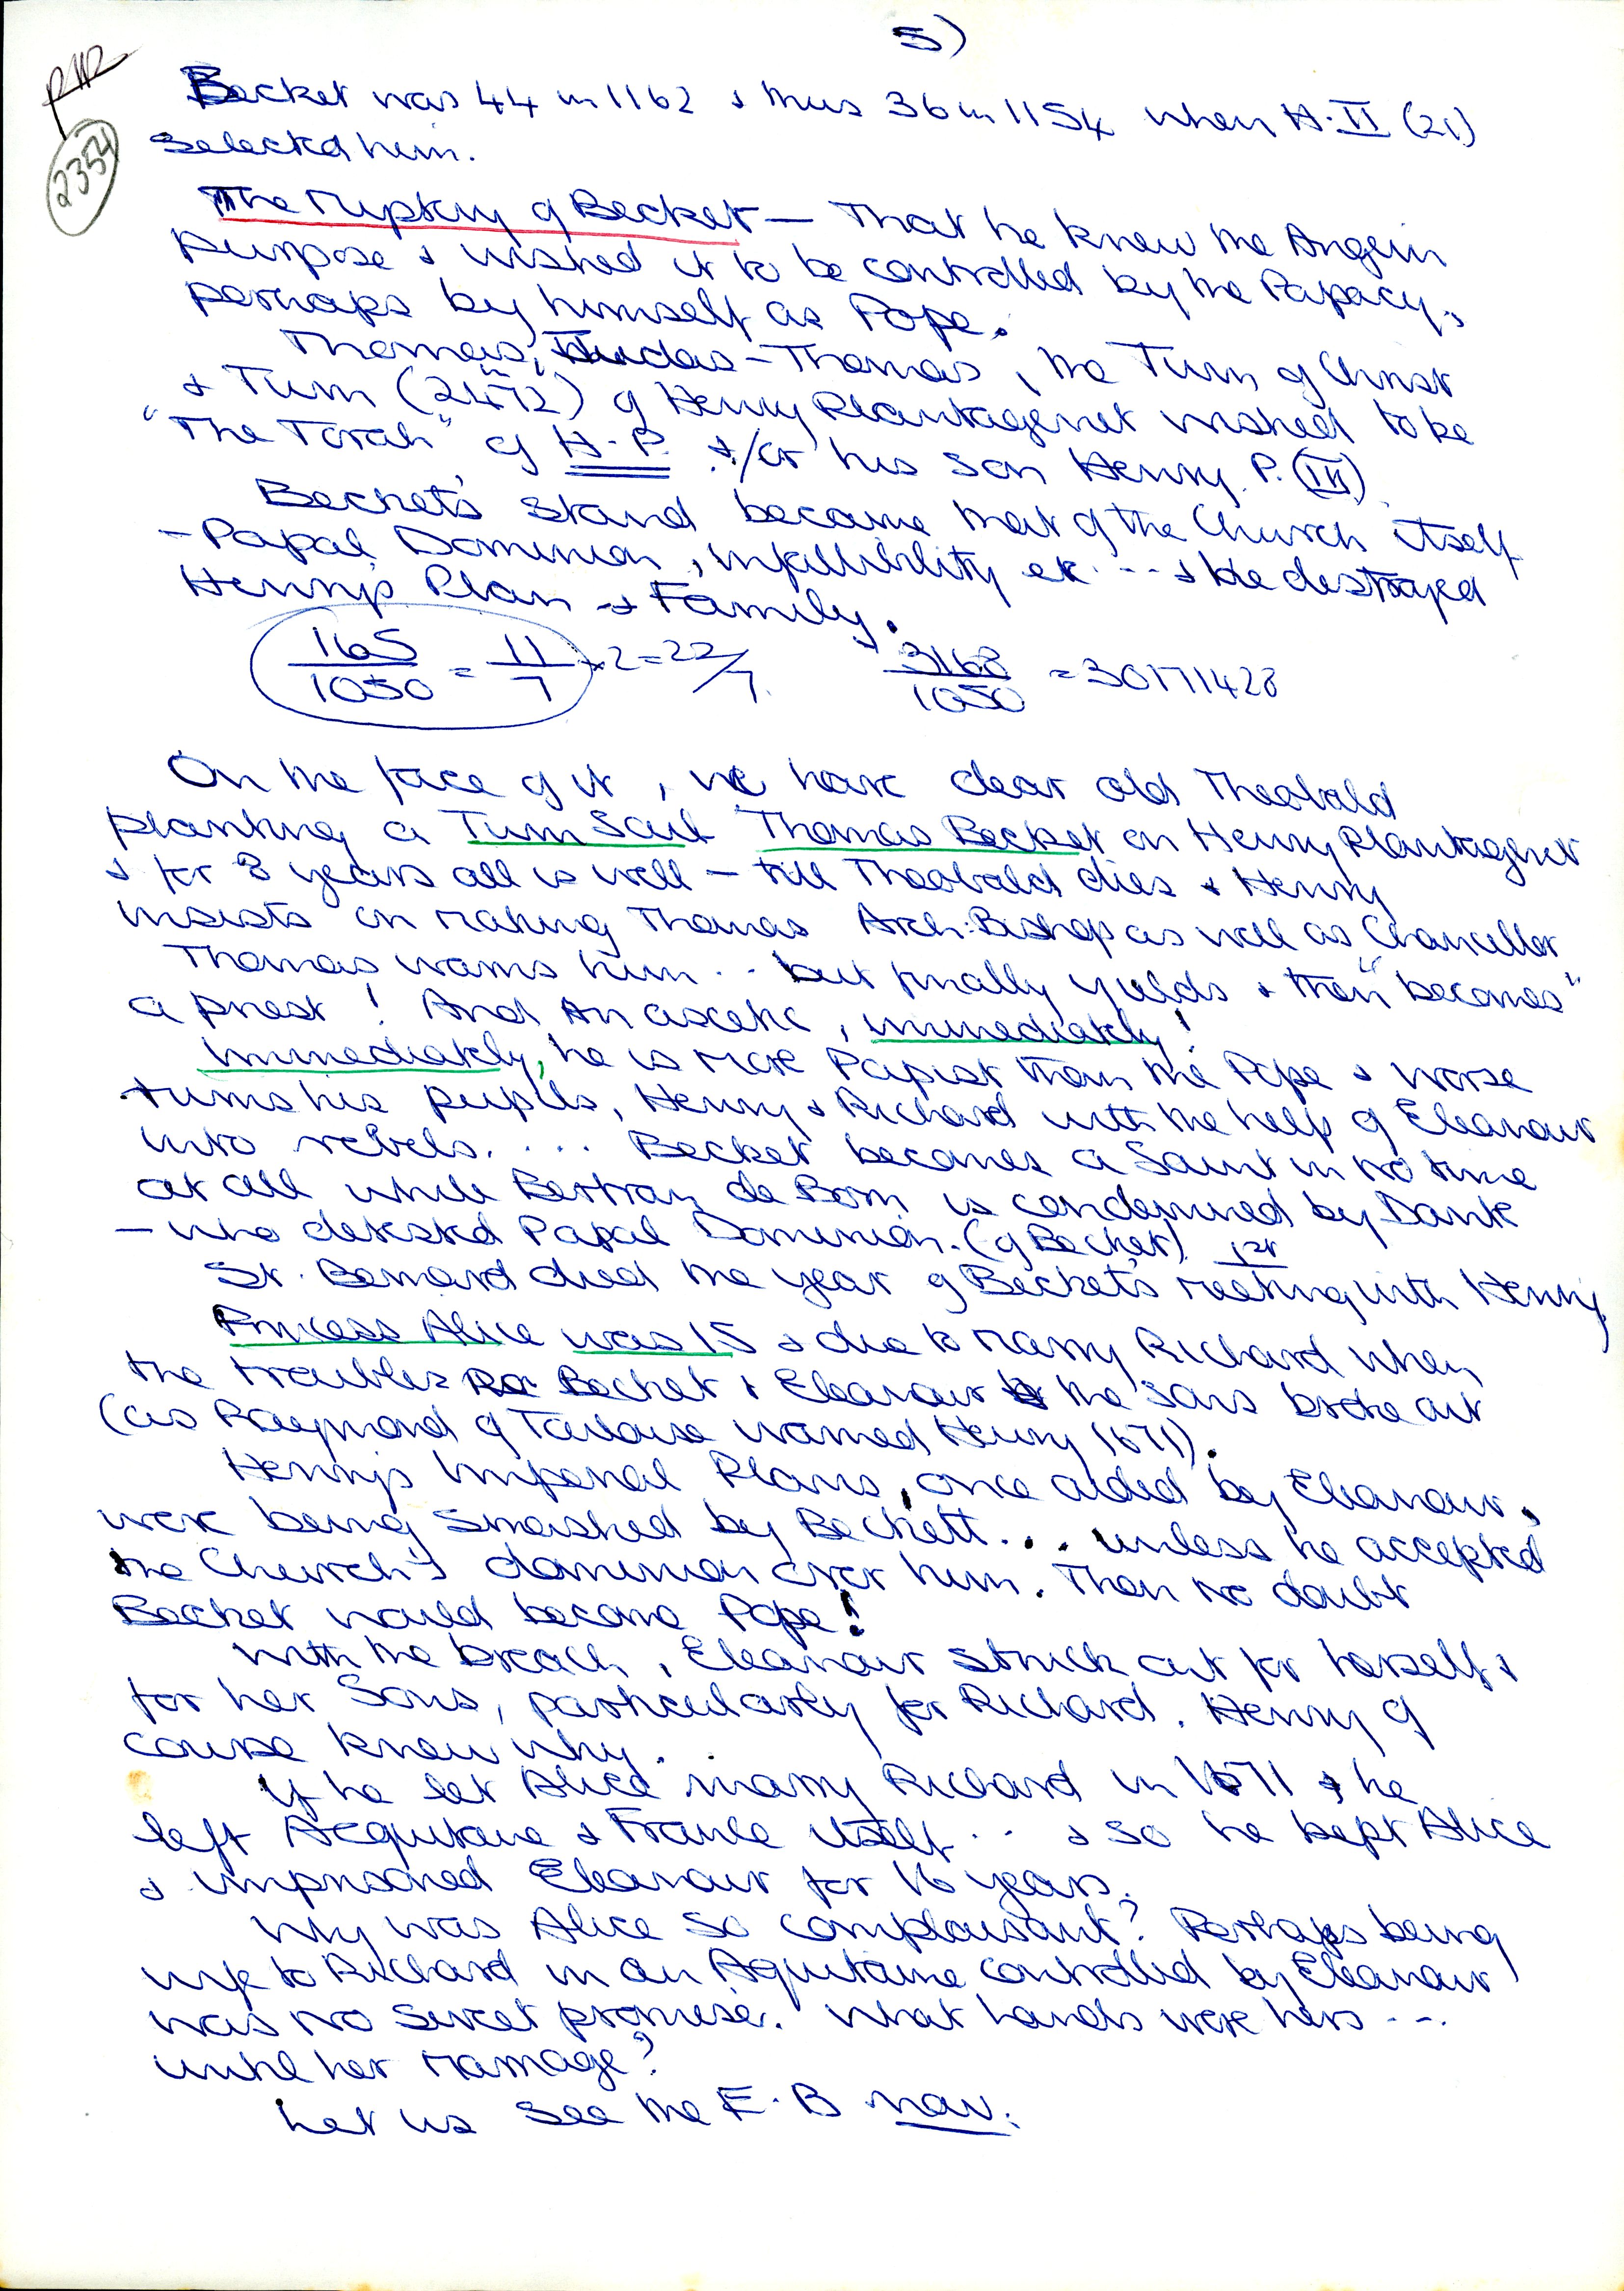 5)
Becket was 44 in 1162 & thus 36 in 1154 when H.II (21)
selected him.
2354
The Mystery of Becket — That he knew the Angevin
purpose & wished it to be controlled by the Papacy,
perhaps by himself as Pope.
Thomas, Judas-Thomas, the Twin of Christ
& Twin of Henry Plantagenet wished to be
"The Torah" of H.P. &/or his son Henry. P. (III)
Becket's stand became that of the Church itself
- Papal Dominion, infallibility etc ... & he destroyed
Henry's Plan & Family.
165/1050 = 11/7 x 2 = 22/7 & 3168/1050 = 30171428
On the face of it, we have dear old Theobald
planting a Twin Soul Thomas Becket on Henry Plantagenet
& for 8 years all is well - till Theobald dies & Henry
insists on making Thomas Arch:Bishop as well as Chancellor
Thomas warns him .. but finally yields & then "becomes"
a priest! And An ascetic, immediately!
Immediately, he is more Papist than the Pope & worse
turns his pupils, Henry & Richard with the help of Eleanour
into rebels. ... Becket becomes a Saint in no time
at all while Bertran de Born is condemned by Dante
- who detested Papal Dominion. (of Becket)
St. Bernard died the year of Becket's 1st meeting with Henry
Princess Alice was 15 & due to marry Richard when
the troubles Becket & Eleanour & the sons broke out
(as Raymond of Toulouse warned Henry 1671).
Henry's Imperial Plans, once aided by Eleanour,
were being smashed by Beckett... unless he accepted
the Church's dominion over him. Then no doubt
Becket would become Pope!
With the breach, Eleanour struck out for herself &
for her Sons, particularly for Richard. Henry of
course knew why..
If he let Alice marry Richard in 1671 & he
left Acquitane & France itself .. & so he kept Alice
& imprisoned Eleanour for 16 years.
Why was Alice so complaisant? Perhaps being
wife to Richard in an Aquitaine controlled by Eleanour
was no sweet promise. What lands were hers ...
until her marriage?
Let us see the E.B now.